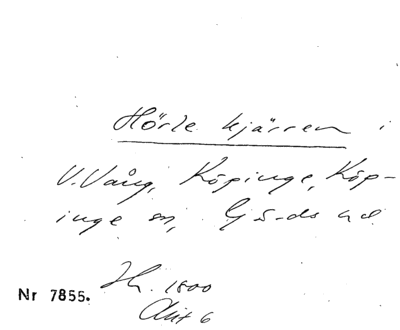 Hörle kjärren i
V. Vång, Köpinge, Köp-
inge sn, Gärds hd
Nr 7855. Jh. 1800
Akt 6